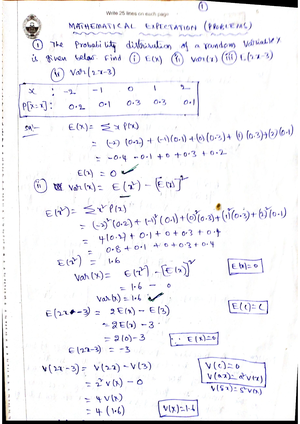 Write 25 lines on each page
(1)
MATHEMATICAL EXPECTATION (PROBLEMS)
① The Probability distribution of a random variable X
is given below find (i) E(X) (ii) Var(X) (iii) E(2X-3)
(iv) Var(2X-3)
X : -2 -1 0 1 2
P[X=x]: 0.2 0.1 0.3 0.3 0.1
E(X) = Σ x P(x)
= (-2)(0.2) + (-1)(0.1) + (0)(0.3) + (1)(0.3) + (2)(0.1)
= -0.4 - 0.1 + 0 + 0.3 + 0.2
E(X) = 0 ✓
(ii) Var(X) = E(X²) - [E(X)]²
E(X²) = Σ x² P(x)
= (-2)²(0.2) + (-1)²(0.1) + (0)²(0.3) + (1)²(0.3) + (2)²(0.1)
= 4(0.2) + 0.1 + 0 + 0.3 + 0.4
= 0.8 + 0.1 + 0 + 0.3 + 0.4
E(X²) = 1.6
Var(X) = E(X²) - [E(X)]²
E(X)=0
= 1.6 - 0
Var(X) = 1.6 ✓
E(2X-3) = 2E(X) - E(3)
E(C)=C
= 2E(X) - 3
= 2(0) - 3
∵ E(X)=0
E(2X-3) = -3
V(2X-3) = V(2X) - V(3)
V(C)=0
V(aX)=a²V(X)
V(2X)=2²V(X)
= 2²V(X) - 0
= 4V(X)
= 4(1.6)
V(X)=1.6